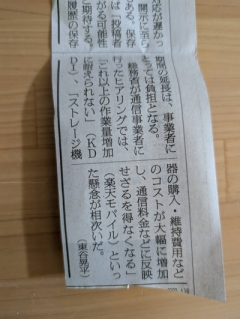 応が遅かっ
ある。保存
開示に至ら
ば「投稿者
がる可能性
に期待する。
履歴の保存
期間の延長は、事業者に
とっては負担となる。
総務省が通信事業者に
行ったヒアリングでは、
「これ以上の作業量増加
に耐えられない」（KD
DI）、「ストレージ機
器の購入・維持費用など
のコストが大幅に増加
し、通信料金などに反映
せざるを得なくなる」
（楽天モバイル）といっ
た懸念が相次いだ。
（東谷晃平）